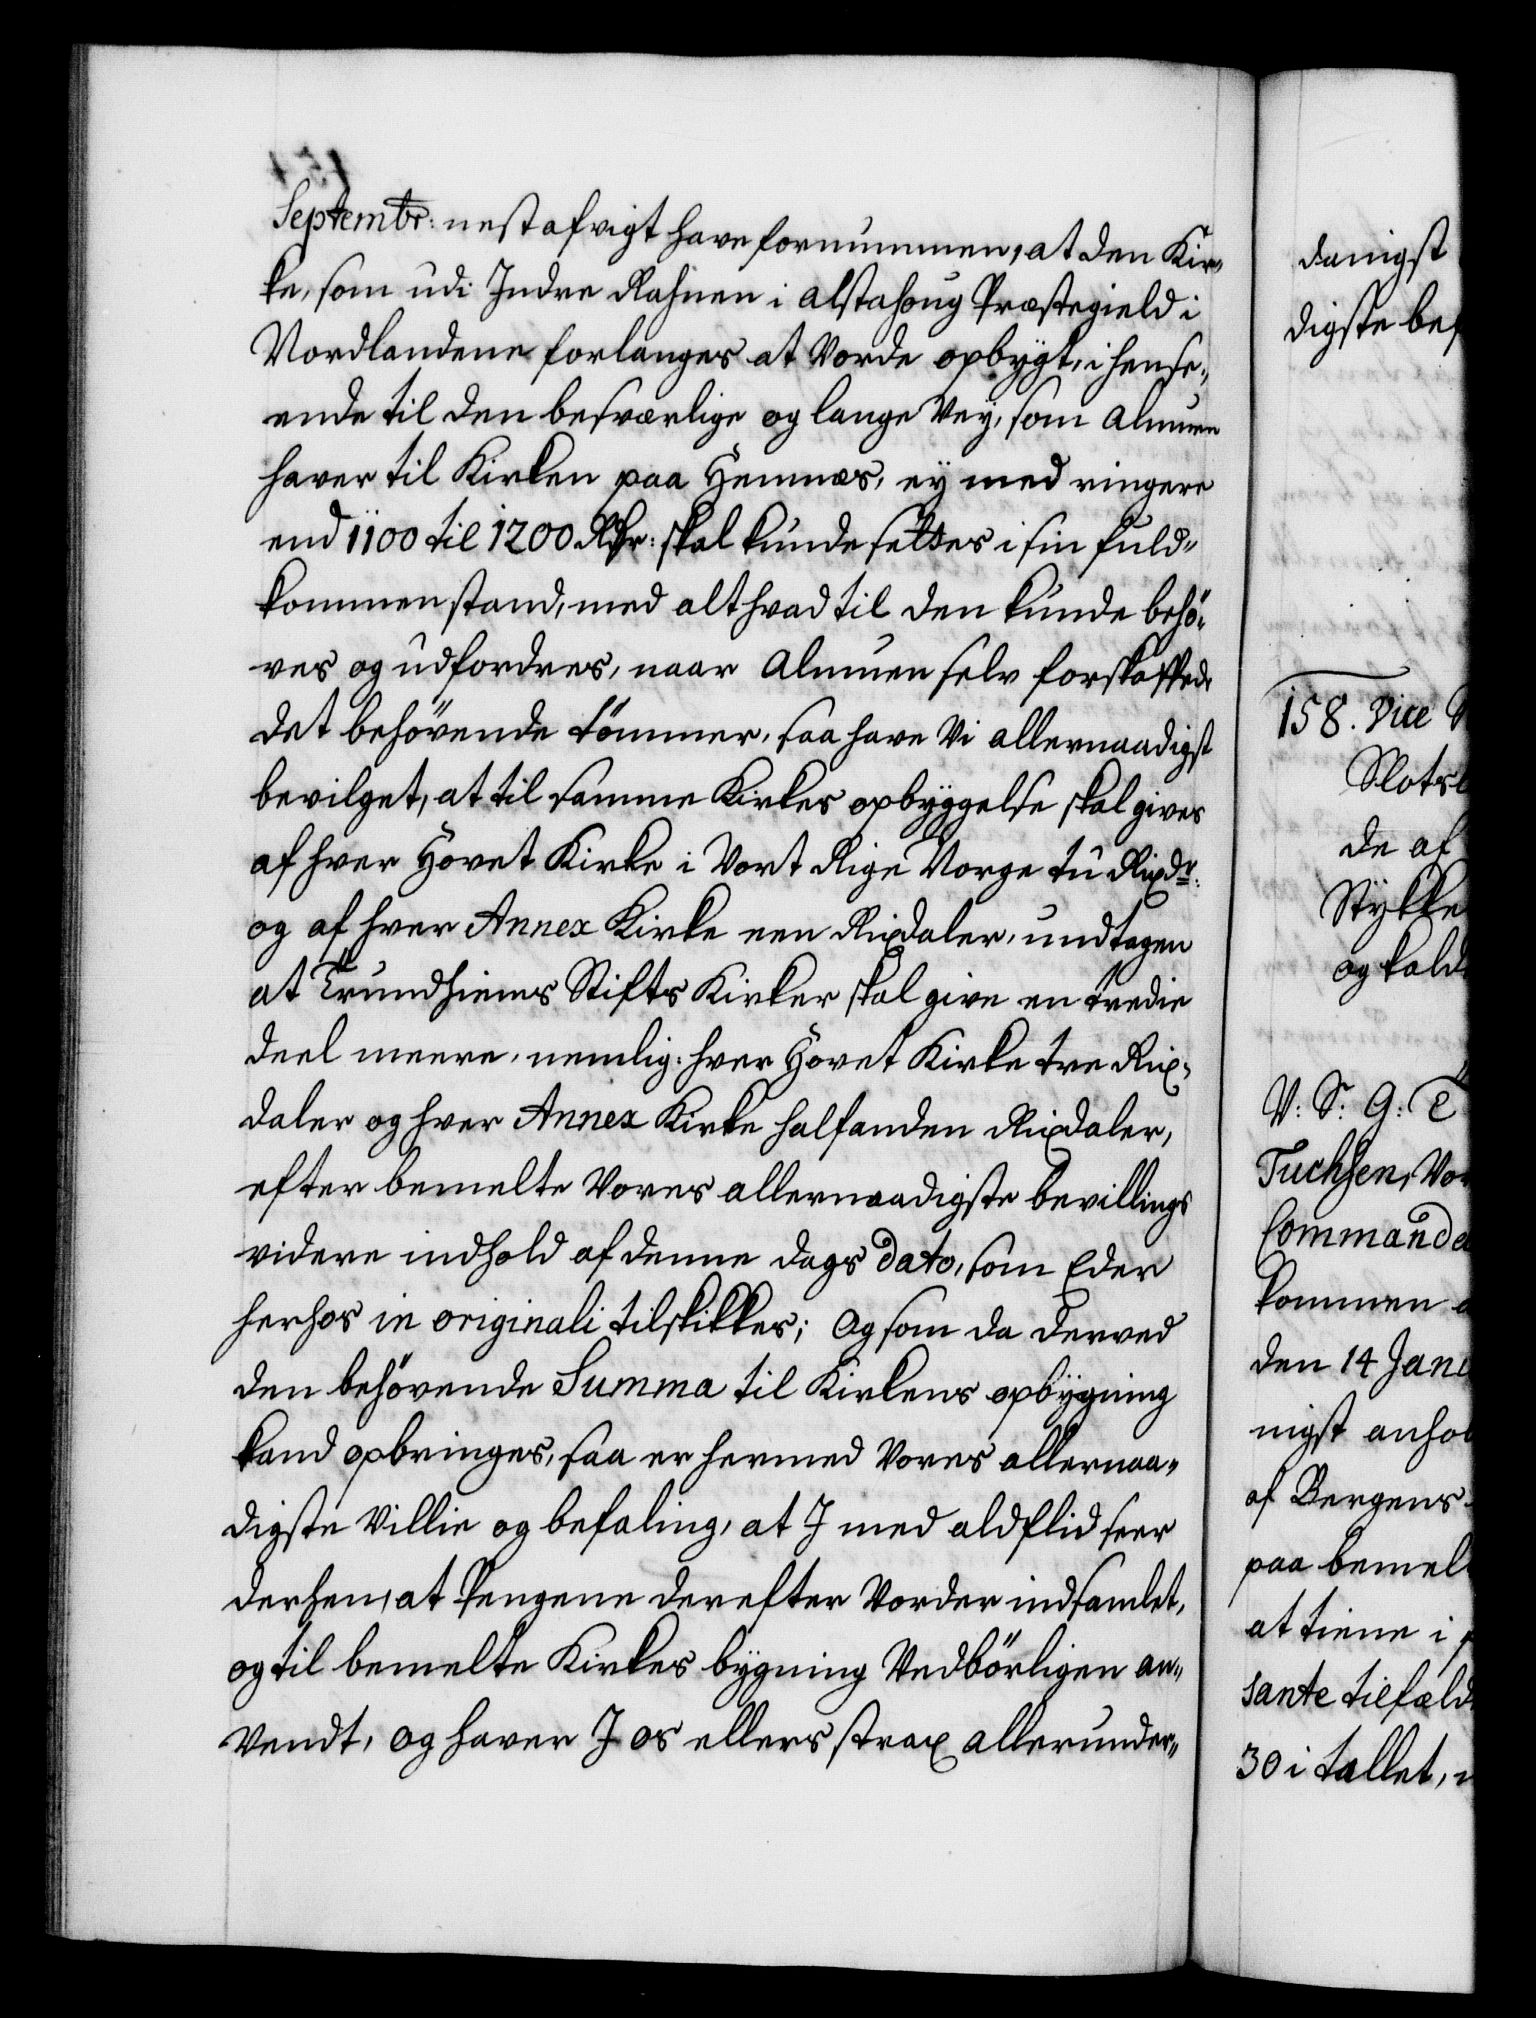 Septembr: nest afvigt have fornummen, at den Kir„
ke, som udi Indre Rahnen i Alstahoug Præstegield i
Nordlandene forlanges at vorde opbygt, i hense„
ende til den besværlige og lange Vey, som Almuen
haver til Kirken paa Hemnæs, ey med ringere
end 1100 til 1200 Rdr: skal kunde settes i sin fuld„
kommen stand, med alt hvad til den kunde behö„
ves og udfordres, naar Almuen selv forskaffede
det behövende tömmer, saa have Vi allernaadigst
bevilget, at til samme Kirkes opbyggelse skal gives
af hver Hovet Kirke i Vort Rige Norge tu Rixdr:
og af hver Annex Kirke een Rixdaler, undtagen
at Trundhiems Stifts Kirker skal give en tredie
deel meere, nemlig: hver Hovet Kirke tre Rix„
daler og hver Annex Kirke halfanden Rixdaler,
efter bemelte Vores allernaadigste bevillings
videre indhold af denne dags dato, som Eder
herhos in originali tilskikkes; Og som da derved
den behövende Summa til Kirkens opbygning
kand opbringes, saa er hermed Vores allernaa„
digste Villie og befaling, at I med ald flid seer
derhen, at Pengene derefter vorder indsamlet,
og til bemelte Kirkes bygning Vedbörligen an„
vendt, og haver I os ellers strax allerunder„
danigst
digste bef
158. Vice
Slots
de af
Stykke
og kald
V: S: G: T
Tuchsen, Vor
Commande
kommen
den 14 Jan
nigst anhol
af Bergens
paa bemel
at tiene i
sante tilfæld
30 i tallet,